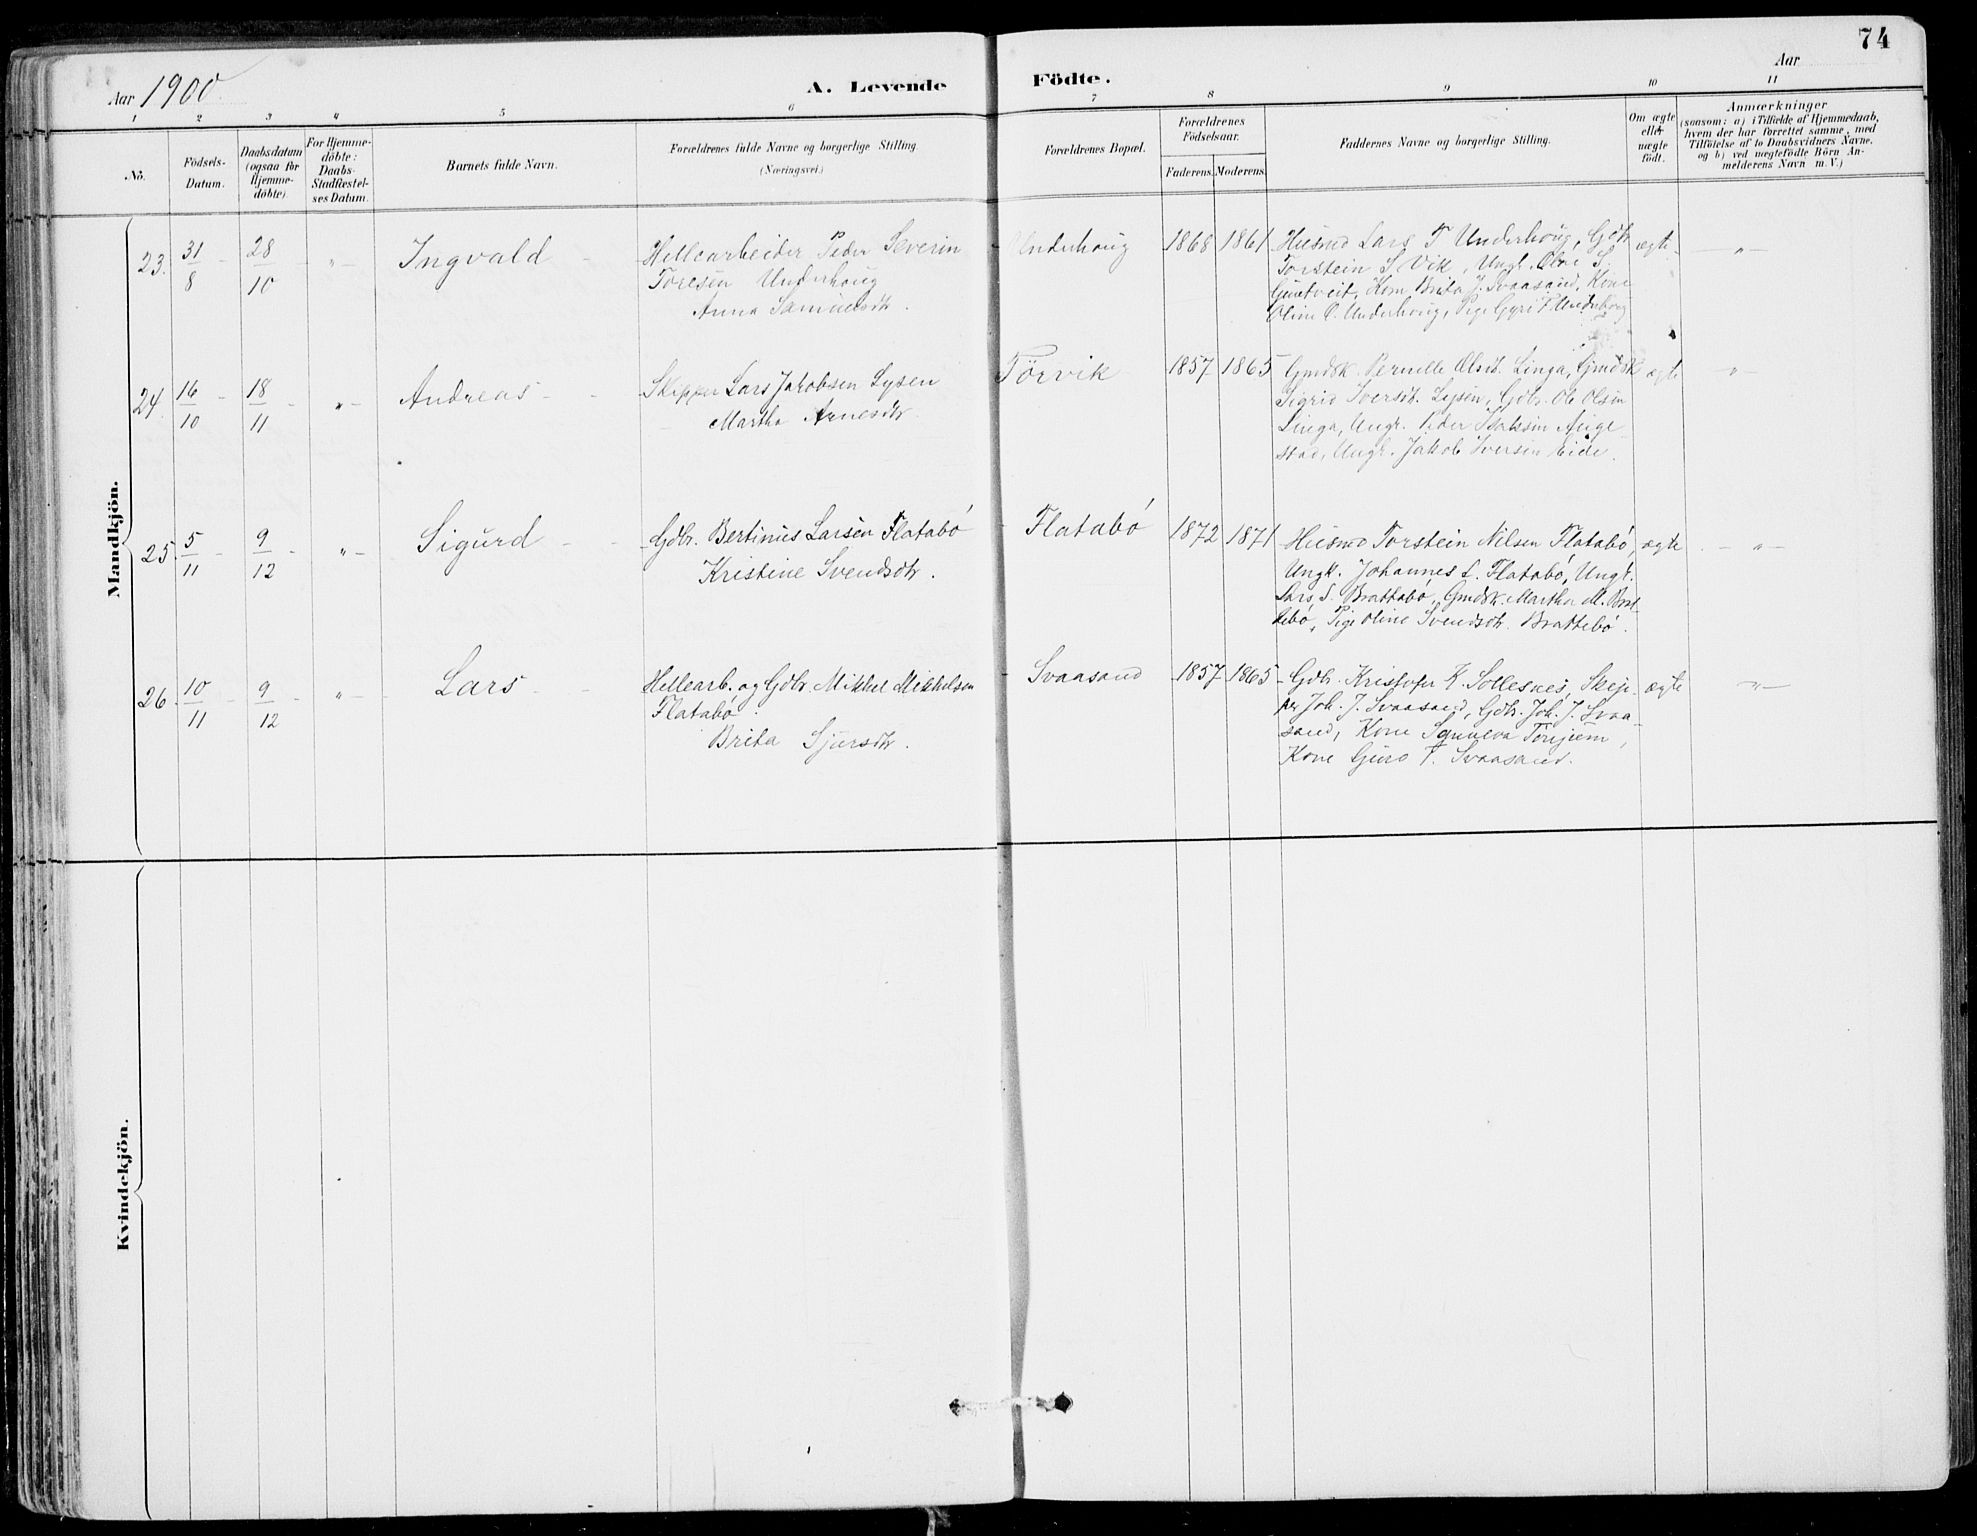 74
Aar 1900
A. Levende Födte.
Aar
1 2 3 4 5 6 7 8 9 10 11
No.
Födsels-
Datum.
Daabsdatum
(ogsaa för
Hjemme-
döbte)
For Hjemme-
döbte:
Daabs-
Stadfæstel-
ses Datum.
Barnets fulde Navn.
Forældrenes fulde Navne og borgerlige Stilling.
(Næringsvei.)
Forældrenes Bopæl.
Forældrenes
Födselsaar.
Faderens. Moderens.
Faddernes Navne og borgerlige Stilling.
Om ægte
eller
uægte
født.
Anmærkninger
(saasom: a) i Tilfælde af Hjemmedaab,
hvem der har forrettet samme, med
Tilföielse af to Daabsvidners Navne,
og b) ved uægtefödte Börn An-
melderens Navn m. V.)
Mandkjön.
23. 31/8 28/10 " Ingvald
Hellearbeider Peder Severin
Toresen Underhoug
Anna Samuelsdtr.
Underhoug 1868 1861
Husmd Lars T Underhoug, Gdbr
Torstein S. Vik, Ungk. Olne S.
Kone Brita J. Svaasand, Kone
Oline O. Underhoug, Pige Gyri P. Underhoug
ægte "
24. 16/10 18/11 " Andreas
Skipper Lars Jakobsen Lysen
Martha Arnesdtr
Törvik 1857 1865
Gmdsk. Pernille Olsdt. Linga, Gmdsk
Sigrid Iversdt. Lysen, Gdbr. Ole Olsen
Linga, Ungk. Peder
Ungk. Jakob Iversen Eide.
ægte "
25. 5/11 9/12 " Sigurd
Gdbr. Bertinus Larsen Flatabö
Kristine Svendsdtr.
Flatabö 1872 1871
Husmd Torstein Nilsen Flatabö,
Ungk. Johannes L. Flatabö, Ungk.
Lars S. Brattabö, Gmdsk. Martha M. Brat-
tebö, Pige Oline Svendsdtr. Brattebö.
ægte "
26. 10/11 9/12 " Lars
Hellearb. og Gdbr. Mikkel Mikkelsen
Flatabö
Brita Sjursdtr.
Svaasand 1857 1865
Gdbr. Kristofer K. Sollesnes, Skip-
per Joh. J. Svaasand, Gdbr. Joh. J. Svaa-
sand, Kone
Kone Guro T. Svaasand.
ægte "
Kvindekjön.